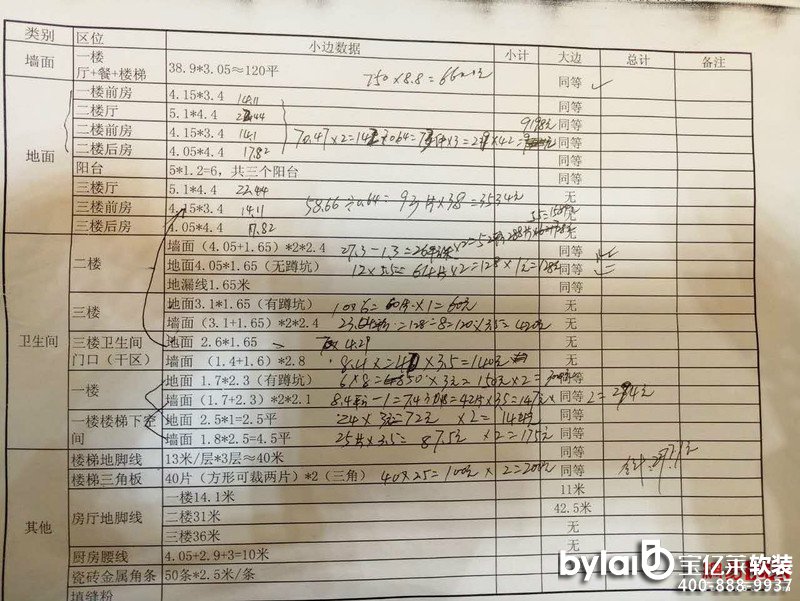 类别 区位 小边数据 小计 大边 总计 备注
墙面 一楼 厅+餐+楼梯 38.9*3.05≈120平 750×8.8=6600元 同等
地面 一楼前房 4.15*3.4 14.11 同等
二楼厅 5.1*4.4 22.44 同等
二楼前房 4.15*3.4 14.1 同等
二楼后房 4.05*4.4 17.82 同等
70.47×2=
9198元
阳台 5*1.2=6，共三个阳台 同等
三楼厅 5.1*4.4 22.44 无
三楼前房 4.15*3.4 14.11 58.66÷0.64=93片×38=3534元 无
三楼后房 4.05*4.4 17.82 无
卫生间 二楼 墙面（4.05+1.65）*2*2.4 27.3-1.3=26 同等
地面4.05*1.65（无蹲坑） 12×5.5=64片×2=128×1元=128元 同等
地漏线1.65米 同等
三楼 地面3.1*1.65（有蹲坑） 60片×1=60元 无
墙面（3.1+1.65）*2*2.4 =128-8=120×3.5=420元 无
三楼卫生间门口（干区） 地面 2.6*1.65 4.29 无
墙面（1.4+1.6）*2.8 8.4 ×3.5=140元 无
一楼 地面 1.7*2.3（有蹲坑） 6×8= ×3元=150元×2= 同等
墙面（1.7+2.3）*2*2.1 8.4 -1=7.4 =42片×3.5=147元× 2=294元 同等
一楼楼梯下空间 地面 2.5*1=2.5平 24×3元=72元 ×2= 同等
墙面 1.8*2.5=4.5平 25片×3.5= 87.5元 ×2=175元 同等
其他 楼梯地脚线 13米/层*3层≈40米 同等
楼梯三角板 40片（方形可裁两片）*2（三角） 40×25=100元×2=200元 同等
合计:
房厅地脚线 一楼14.1米 11米
二楼31米 42.5米
三楼36米 无
厨房腰线 4.05+2.9+3=10米 无
瓷砖金属角条 50条*2.5米/条
填缝粉
bylai 宝亿莱软装
400-888-9937